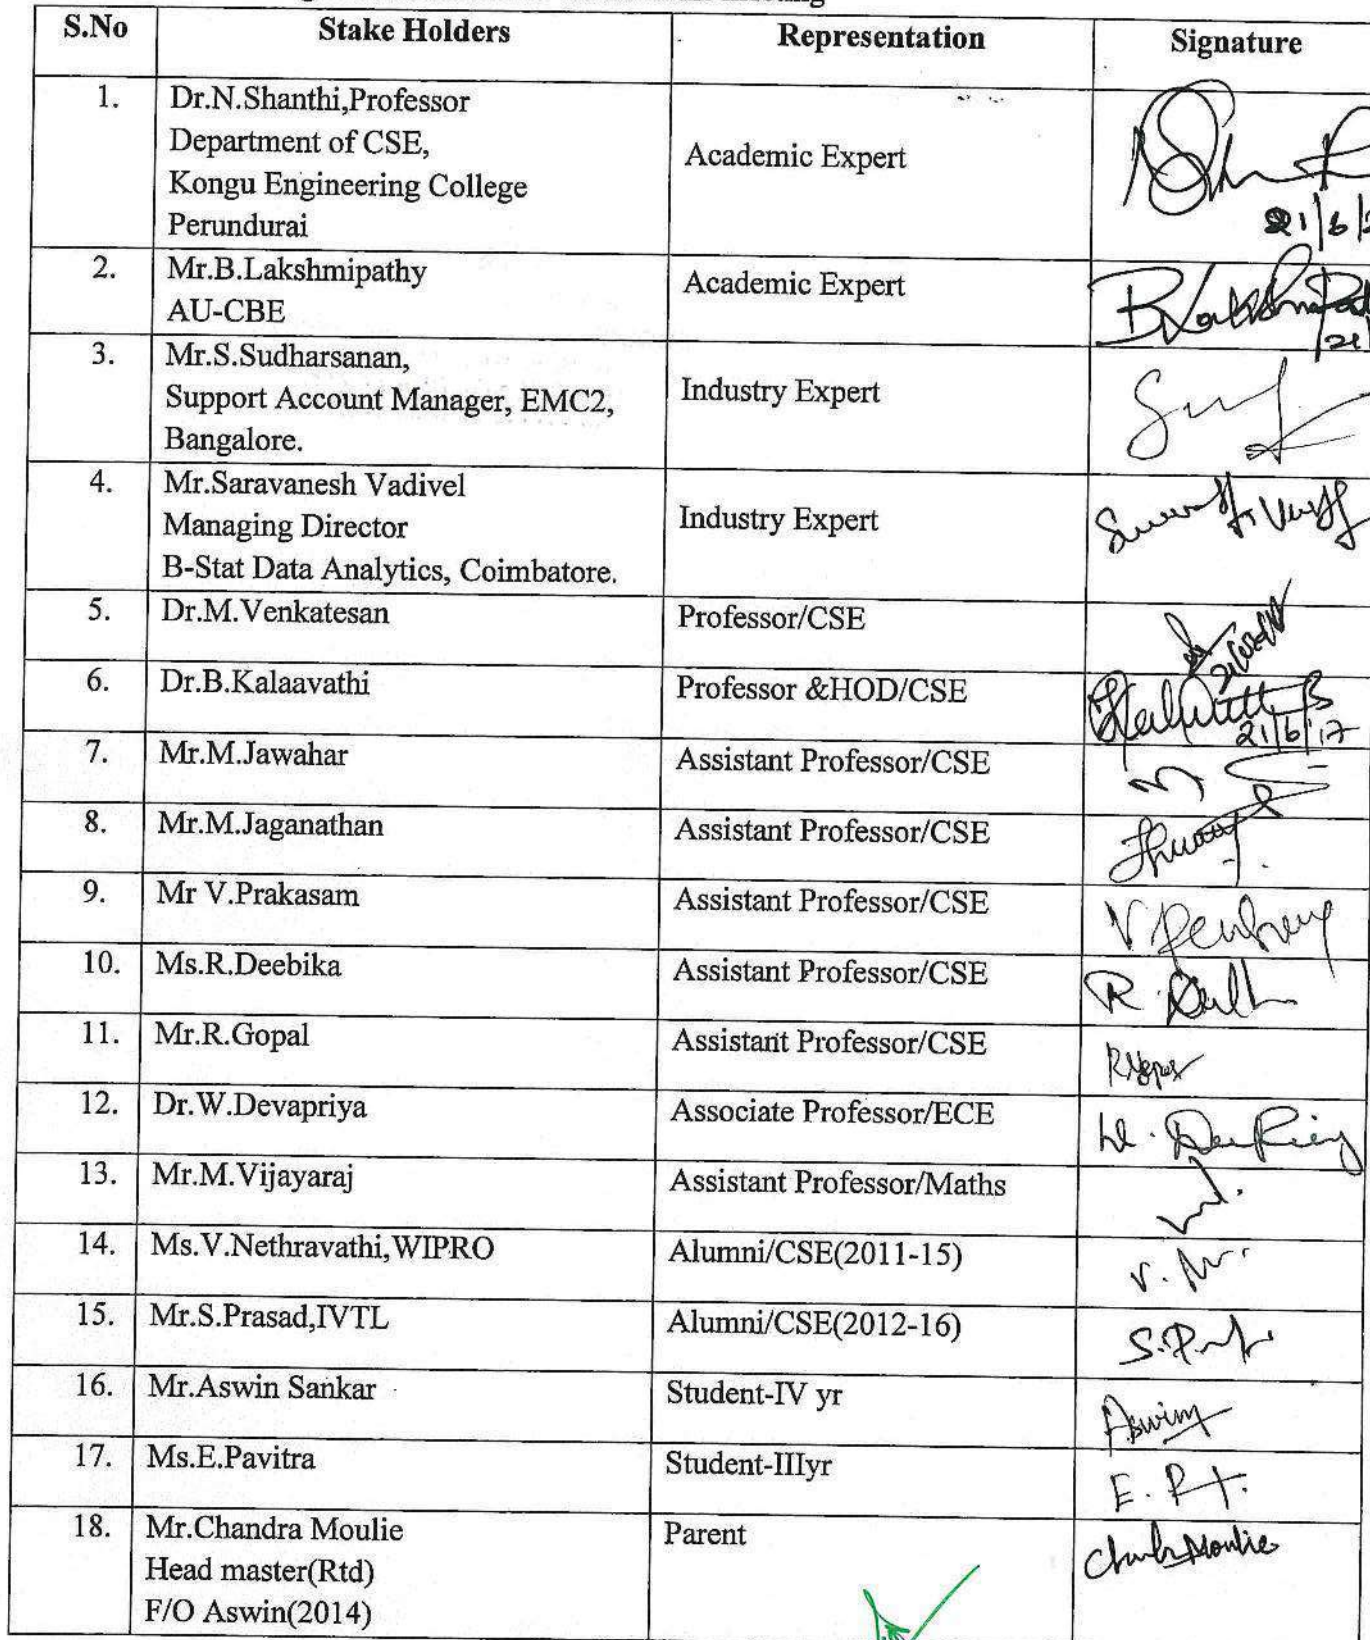 S.No Stake Holders Representation Signature
1. Dr.N.Shanthi,Professor
Department of CSE,
Kongu Engineering College
Perundurai
Academic Expert
21/6/
2. Mr.B.Lakshmipathy
AU-CBE
Academic Expert
21/
3. Mr.S.Sudharsanan,
Support Account Manager, EMC2,
Bangalore.
Industry Expert
4. Mr.Saravanesh Vadivel
Managing Director
B-Stat Data Analytics, Coimbatore.
Industry Expert
5. Dr.M.Venkatesan Professor/CSE
6. Dr.B.Kalaavathi Professor &HOD/CSE
21/6/17
7. Mr.M.Jawahar Assistant Professor/CSE
8. Mr.M.Jaganathan Assistant Professor/CSE
9. Mr V.Prakasam Assistant Professor/CSE
10. Ms.R.Deebika Assistant Professor/CSE
11. Mr.R.Gopal Assistant Professor/CSE
12. Dr.W.Devapriya Associate Professor/ECE
13. Mr.M.Vijayaraj Assistant Professor/Maths
14. Ms.V.Nethravathi,WIPRO Alumni/CSE(2011-15)
15. Mr.S.Prasad,IVTL Alumni/CSE(2012-16)
16. Mr.Aswin Sankar Student-IV yr Aswin
17. Ms.E.Pavitra Student-IIIyr
18. Mr.Chandra Moulie
Head master(Rtd)
F/O Aswin(2014)
Parent